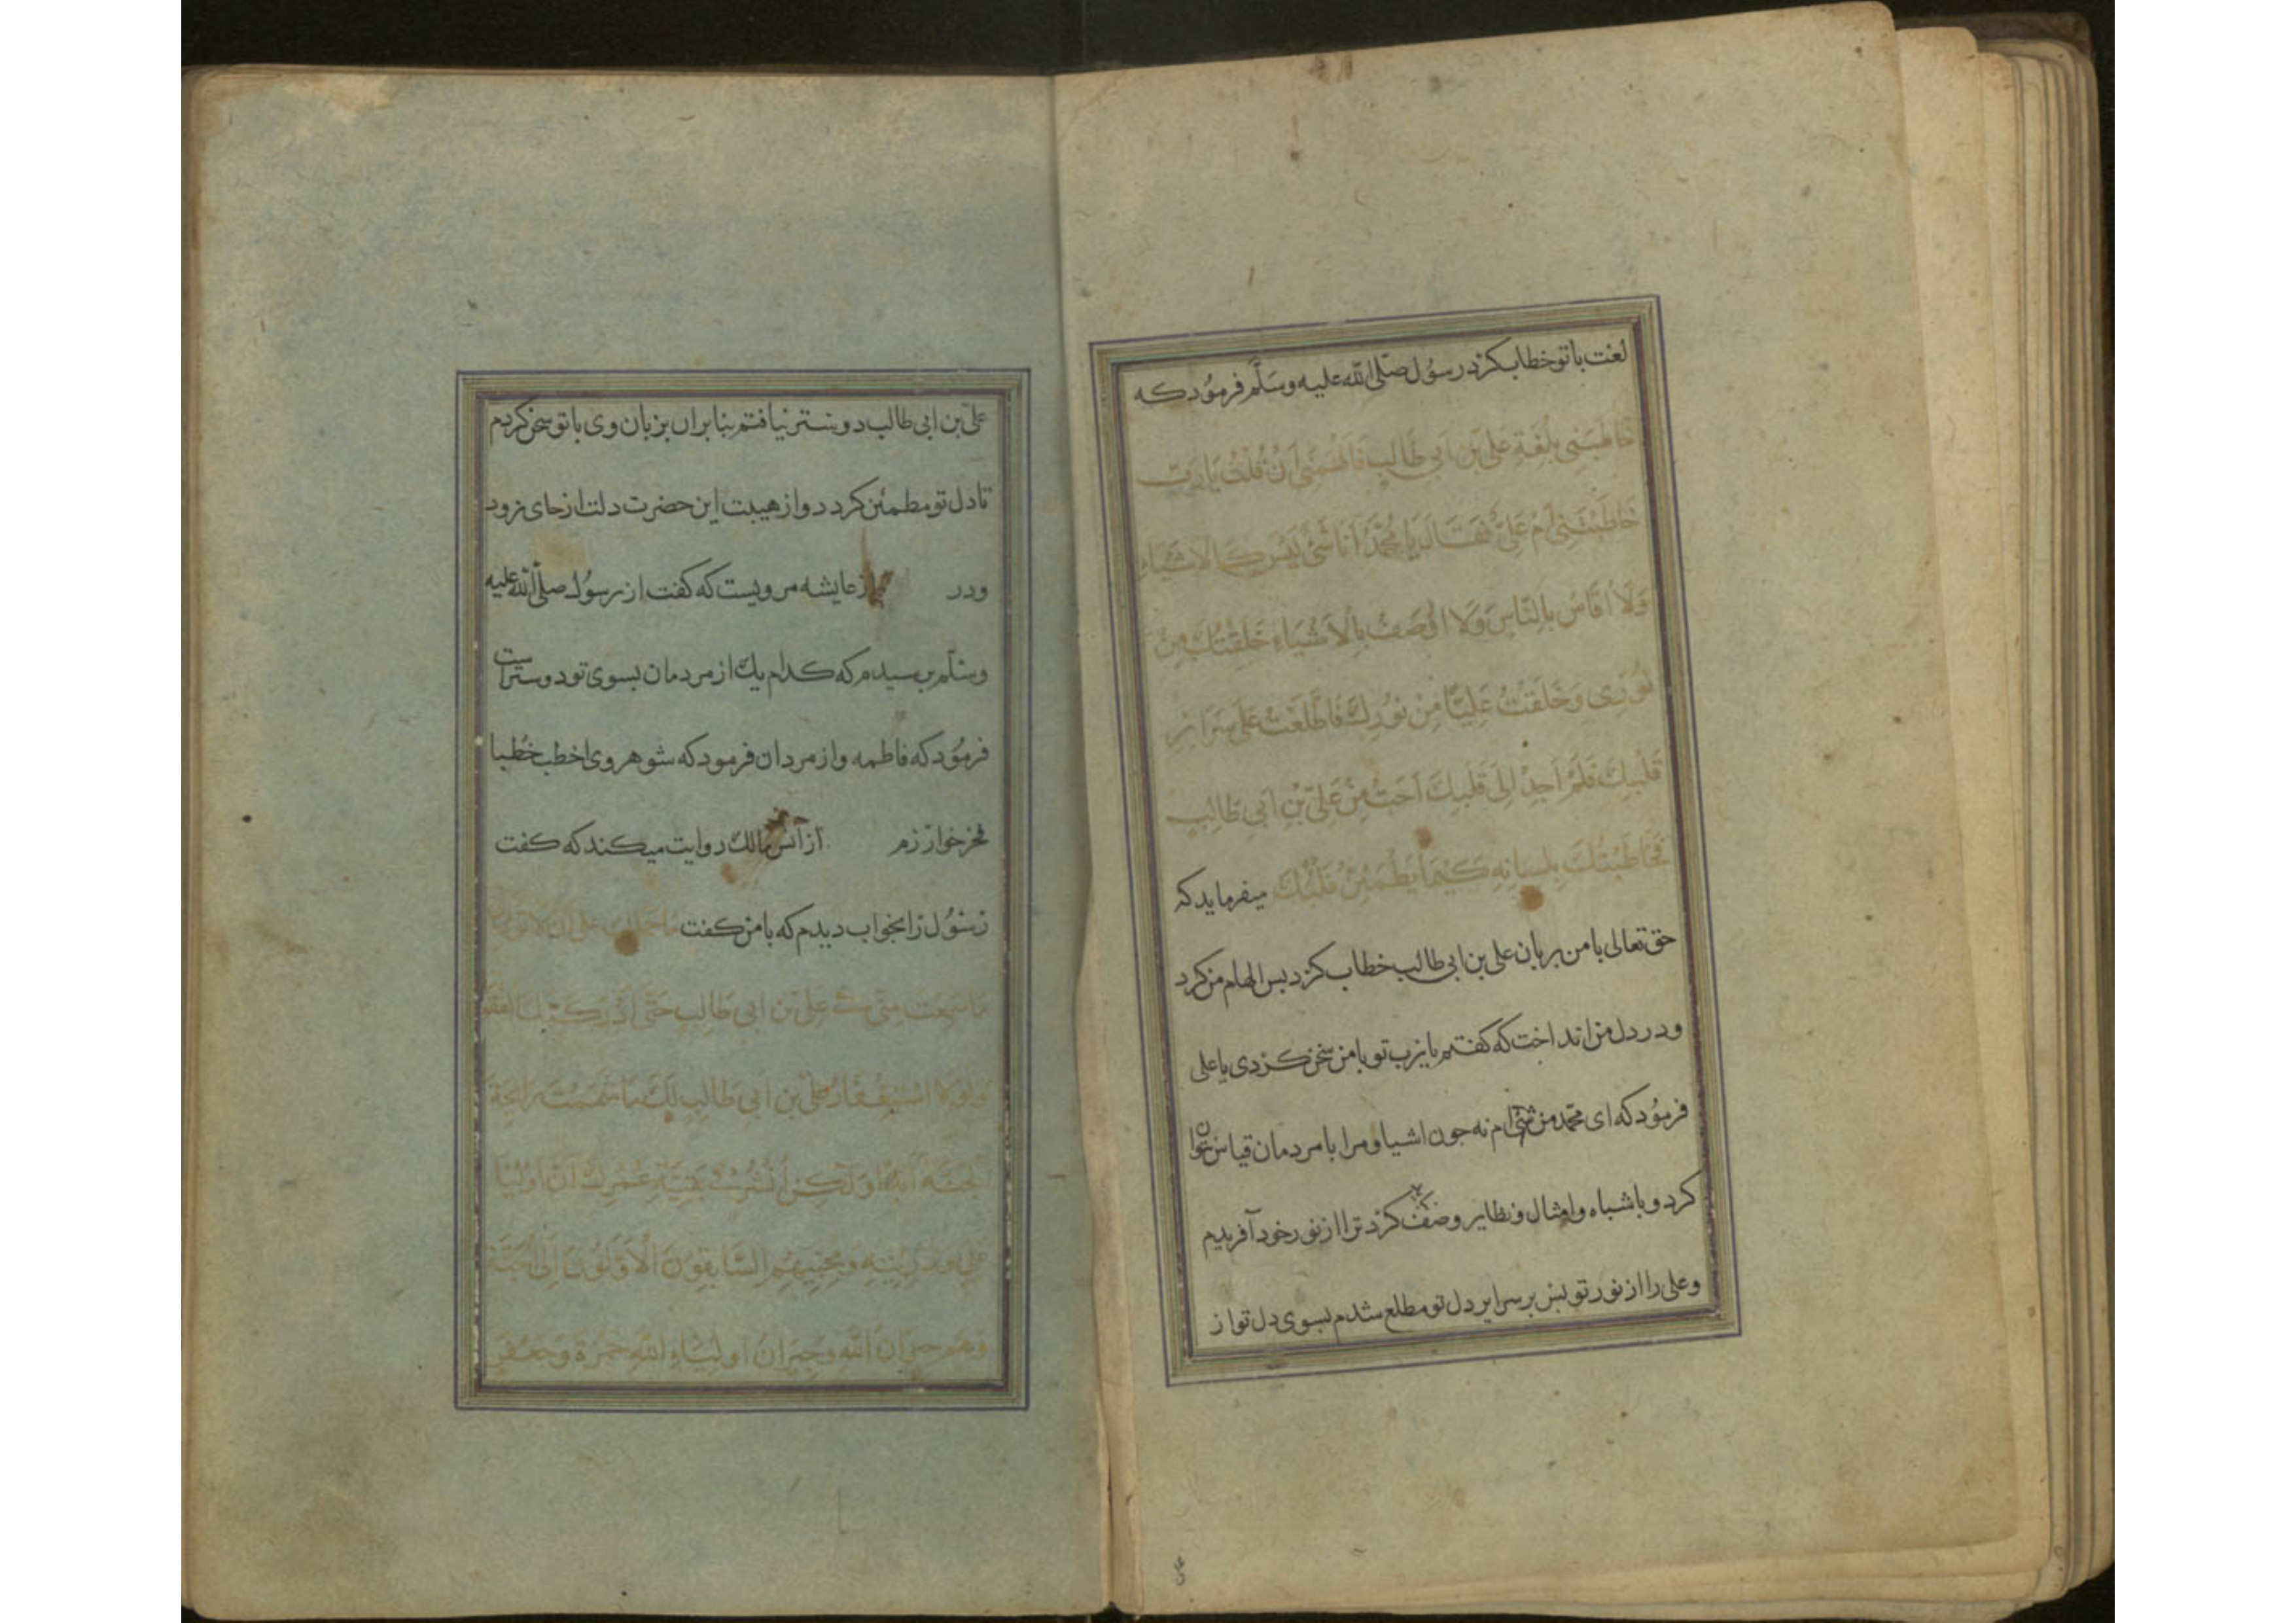 لغت با تو خطاب کرد رسول صلی الله علیه وسلم فرمود که
خاطبنی بلغة علی بن ابی طالب فالهمنی ان قلت یا رب
خاطبتنی ام علی فقال یا محمد انا شیء لیس کالاشیاء
ولا اقاس بالناس ولا اوصف بالاشباه خلقتک من
نوری وخلقت علیا من نورک فاطلعت علی سرائر
قلبک فلم اجد الی قلبک احب من علی بن ابی طالب
فخاطبتک بلسانه کیما یطمئن قلبک میفرماید که
حق تعالی با من بزبان علی بن ابی طالب خطاب کرد بس الهام من کرد
ودر دل من انداخت که کفتم یا رب تو با من سخن کردی یا علی
فرمود که ای محمد من شیء ام نه جون اشیا ومرا با مردمان قیاس نتوان
کرد و با شباه وامثال ونظایر وصف نکرد ترا از نور خود آفریدم
وعلی را از نور تو بس بر سرایر دل تو مطلع شدم بسوی دل تو از
علی بن ابی طالب دوستر نیافتم بنا بران بزبان وی با تو سخن کردم
تا دل تو مطمئن کردد واز هیبت این حضرت دلت از جای نرود
ودر از عایشه مرویست که کفت از رسول صلی الله علیه
وسلم برسیدم که کدام یک از مردمان بسوی تو دوستر است
فرمود که فاطمه واز مردان فرمود که شوهر وی اخطب خطبا
فخر خوارزم از انس مالک روایت میکند که کفت
رسول را بخواب دیدم که با من کفت ما حملک علی ان لا تودی
ما سمعت منی فی علی بن ابی طالب حتی ادرکتک العقوبة
ولولا استغفار علی بن ابی طالب لک ما شممت رایحة
الجنة ابدا ولکن انشر فی بقیة عمرک ان اولیا
علی وذریته ومحبیهم السابقون الاولون الی الجنة
وهم جیران الله وجیران اولیاء الله حمزة وجعفر